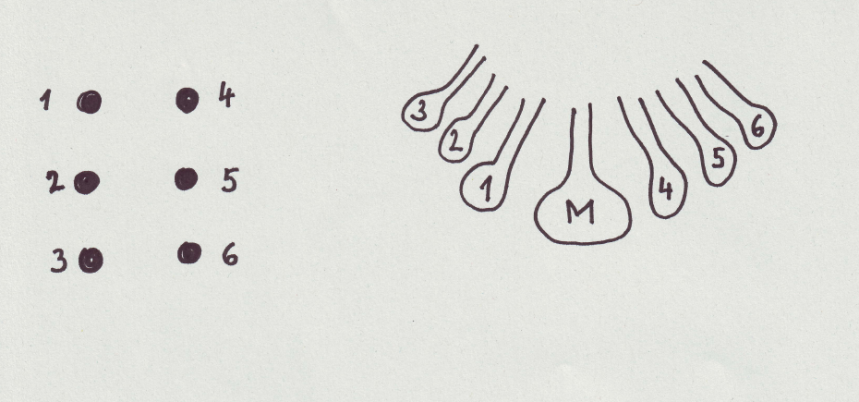 1 4
2 5
3 6
3 2 1 M 4 5 6